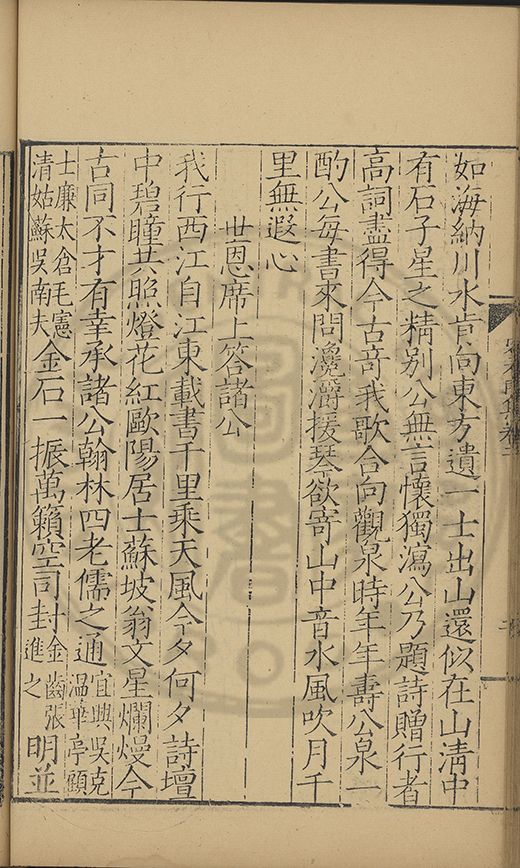 如海納川水肯向東方遺一士出山還似在山清中
有石子星之精別公無言懷獨瀉公乃題詩贈行者
高詞盡得今古竒我歌合向觀泉時年年壽公泉一
酌公每書來問灔澦援琴欲寄山中音水風吹月千
里無遐心
世恩席上答諸公
我行西江自江東載書千里乘天風今夕何夕詩壇
中碧瞳共照燈花紅歐陽居士蘇坡翁文星爛熳今
古同不才有幸承諸公翰林四老儒之通宜興吳克溫華亭顧
士廉太倉毛憲清姑蘇吳南夫金石一振萬籟空司封金齒張進之明並